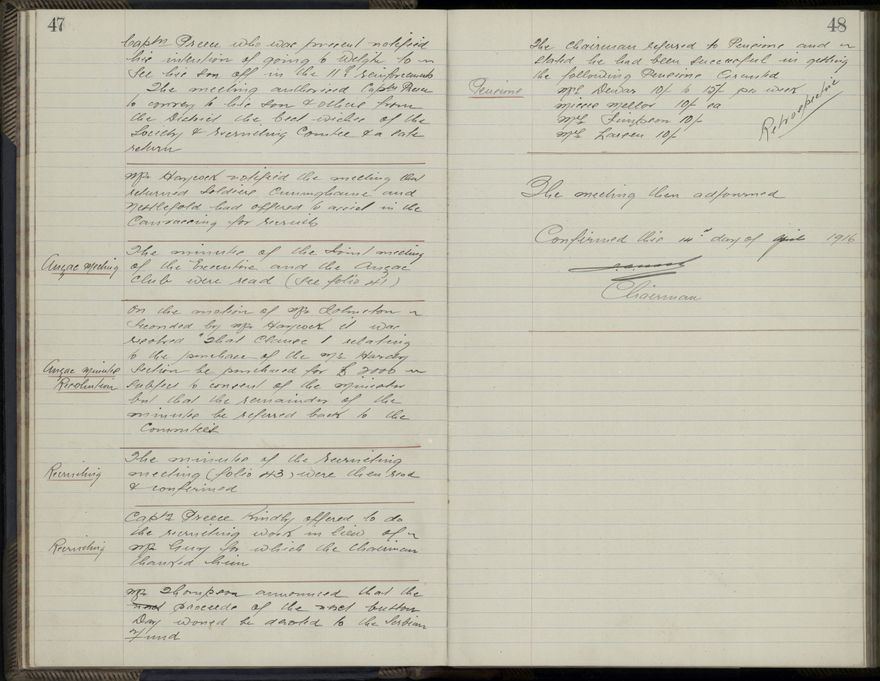 47
Captn Preece who was present notified
his intention of going to Wgtn to
see his son off in the 11th reinforcements
The meeting authorised Captn Preece
to convey to his son & others from
the District the best wishes of the
Society & recruiting Comtee & a safe
return
Mr Haycock notified the meeting that
returned Soldiers Cunninghame and
Nettlefold had offered to assist in the
Canvassing for recruits
Anzac Meeting
The minutes of the Joint meeting
of the Executive and the Anzac
Club were read (See folio 41)
Anzac Minutes
Resolution
On the motion of Mr Johnston
Seconded by Mr Haycock it was
resolved "That Clause 1 relating
to the purchase of the Mr Hardy
Section be purchased for £2000
Subject to consent of the Minister
but that the remainder of the
minutes be referred back to the
Committee
Recruiting
The minutes of the recruiting
meeting (folio 43) were then read
& confirmed
Recruiting
Captn Preece kindly offered to do
the recruiting work in lieu of
Mr Guy for which the Chairman
thanked him
Mr Thompson announced that the
proceeds of the next button
Day would be devoted to the Serbian
Fund
48
Pensions
The Chairman referred to Pensions and
stated he had been successful in getting
the following Pensions Granted
Mrs Dewar 10/- to 15/- per week
Misses Mellor 10/- ea
Mrs Simpson 10/-
Mrs Larsen 10/-
Retrospective
The meeting then adjourned
Confirmed this 14th day of April 1916
Chairman